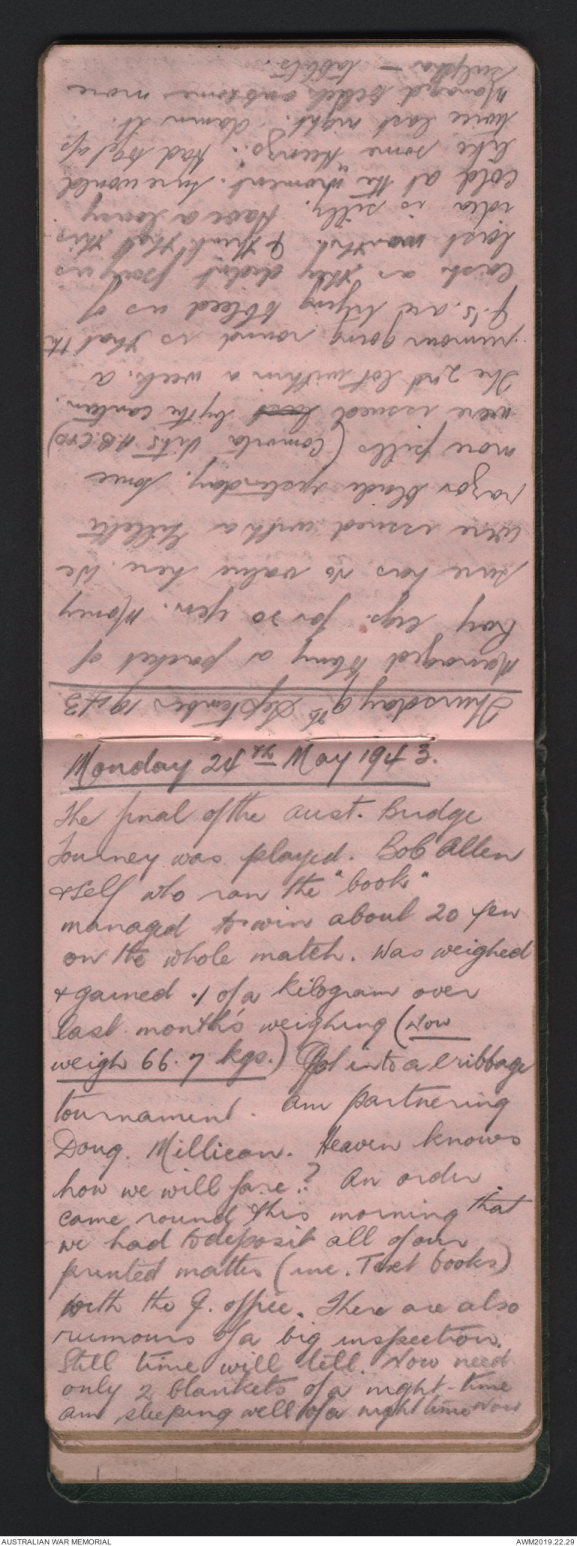 Thursday 9th September 1943
Managed to buy a packet of
Ray cigs. for 30 yen. Money
sure has no value here. We
were issued with a Gillette
razor blade yesterday. Some
more pills (Comvita Vits A.B.C & D)
were issued by the canteen.
The 2nd lot within a week. A
rumour going round is that the
J's. are trying to bleed us of
cash as they didn't pay us
last month. I think that this
idea is silly. Have a lousy
cold at the moment. Sure would
like some Heenzo. Had to get up
twice last night. damn it.
Managed to get some more
sulpha - tablets.
Monday 24th May 1943.
The final of the Aust. Bridge
Tourney was played. Bob Allen
& self who ran the "book"
managed to win about 20 yen
on the whole match. Was weighed
& gained .1 of a kilogram over
last month's weighing (Now
weigh 66.7 kgs.) Got into a cribbage
tournament. Am partnering
Doug. Millican. Heaven knows
how we will fare.? An order
came round this morning that
we had to deposit all of our
printed matter (inc. Text books)
with the Q. office. There are also
rumours of a big inspection.
Still time will tell. Now need
only 2 blankets of a night-time
am sleeping well of a night time now
AUSTRALIAN WAR MEMORIAL
AWM2019.22.29